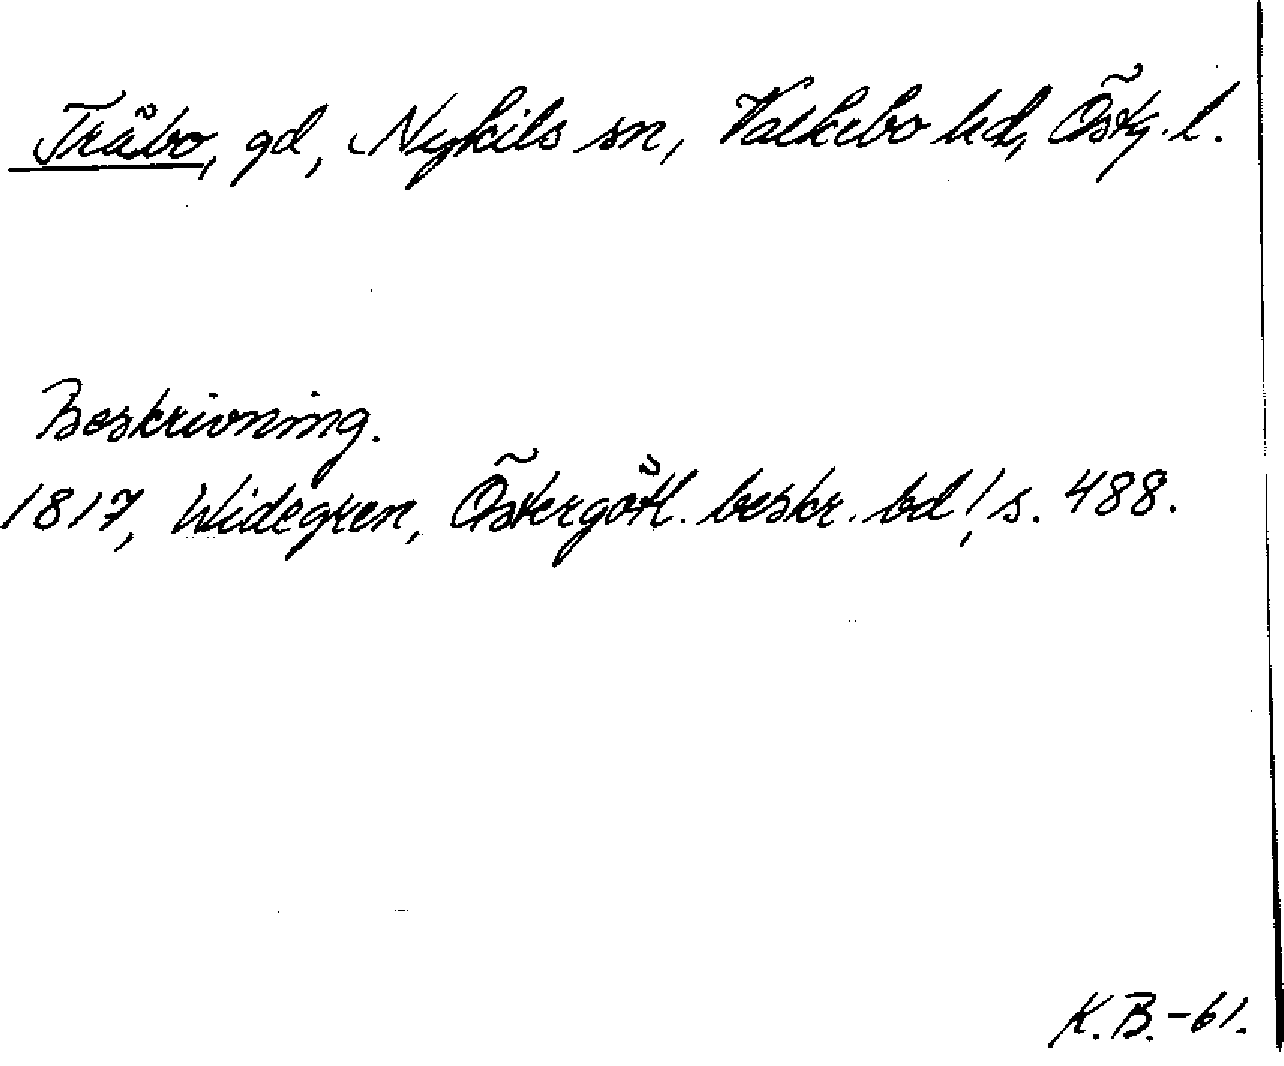 Tråbo, gd, Nykils sn, Valkebo hd, Östg. l.
Beskrivning.
1817, Widegren, Östergötl. beskr. bd 1, s. 488.
K.B.-61.